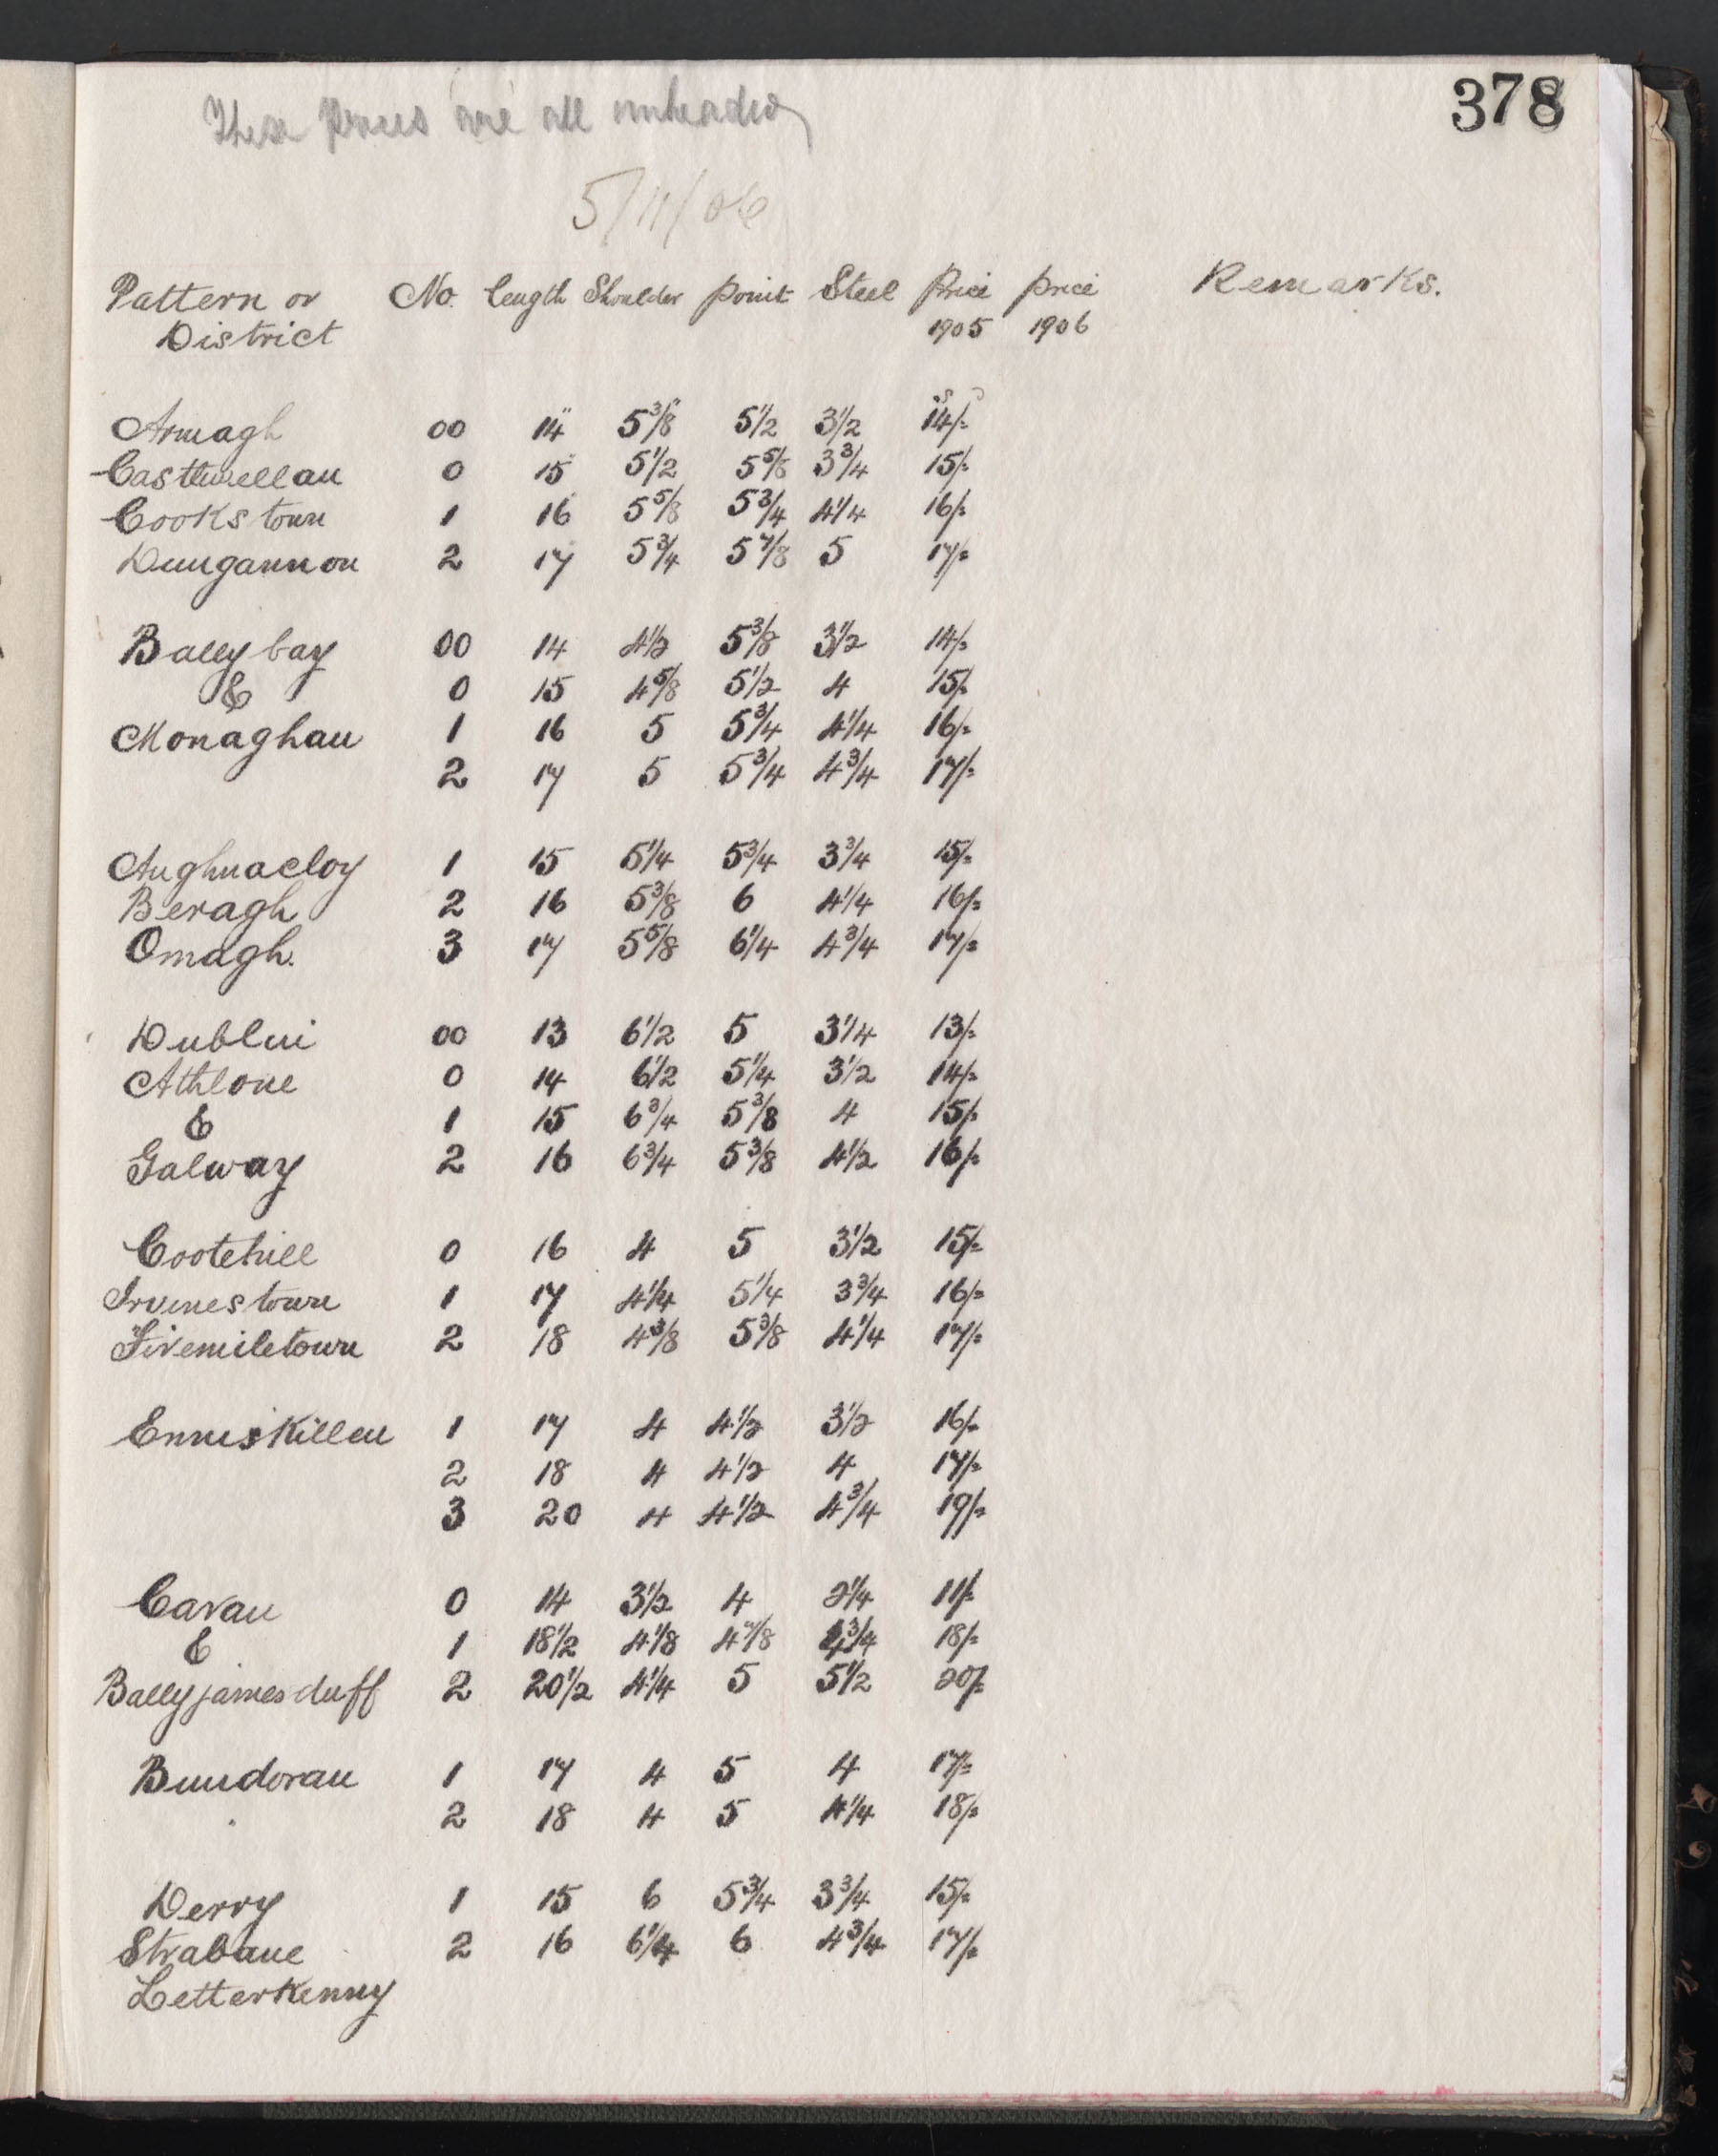 378
These prices are all unheaded
5/11/06
Pattern or No. Length Shoulder point Steel Price price Remarks.
District 1905 1906
Armagh 00 14" 5 3/8" 5 1/2 3 1/2 14/-
Castlewellan 0 15 5 1/2 5 5/8 3 3/4 15/-
Cookstown 1 16 5 5/8 5 3/4 4 1/4 16/-
Dungannon 2 17 5 3/4 5 7/8 5 17/-
Ballybay 00 14 4 1/2 5 3/8 3 1/2 14/-
& 0 15 4 5/8 5 1/2 4 15/-
Monaghan 1 16 5 5 3/4 4 1/4 16/-
2 17 5 5 3/4 4 3/4 17/-
Aughnacloy 1 15 5 1/4 5 3/4 3 3/4 15/-
Beragh 2 16 5 3/8 6 4 1/4 16/-
Omagh. 3 17 5 5/8 6 1/4 4 3/4 17/-
Dublin 00 13 6 1/2 5 3 1/4 13/-
Athlone 0 14 6 1/2 5 1/4 3 1/2 14/-
& 1 15 6 3/4 5 3/8 4 15/-
Galway 2 16 6 3/4 5 3/8 4 1/2 16/-
Cootehill 0 16 4 5 3 1/2 15/-
Irvinestown 1 17 4 1/4 5 1/4 3 3/4 16/-
Fivemiletown 2 18 4 3/8 5 3/8 4 1/4 17/-
Enniskillen 1 17 4 4 1/2 3 1/2 16/-
2 18 4 4 1/2 4 17/-
3 20 4 4 1/2 4 3/4 19/-
Cavan 0 14 3 1/2 4 2 1/4 11/-
& 1 18 1/2 4 1/8 4 7/8 4 3/4 18/-
Ballyjamesduff 2 20 1/2 4 1/4 5 5 1/2 20/-
Bundoran 1 17 4 5 4 17/-
2 18 4 5 4 1/4 18/-
Derry 1 15 6 5 3/4 3 3/4 15/-
Strabane 2 16 6 1/4 6 4 3/4 17/-
Letterkenny